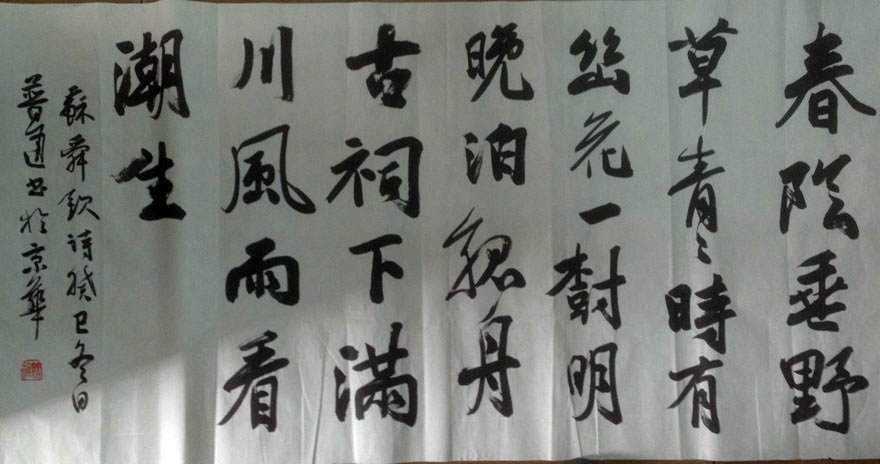 春陰垂野
草青〻時有
幽花一樹明
晚泊孤舟
古祠下滿
川風雨看
潮生
蘇舜欽詩癸巳冬日
普通书於京華